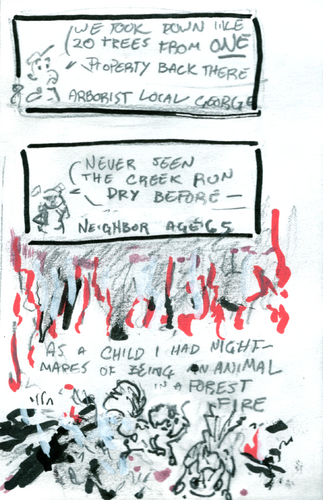 WE TOOK DOWN LIKE
20 TREES FROM ONE
PROPERTY BACK THERE
ARBORIST LOCAL GEORGE
NEVER SEEN
THE CREEK RUN
DRY BEFORE —
NEIGHBOR AGE 65
AS A CHILD I HAD NIGHT-
MARES OF BEING AN ANIMAL
IN A FOREST
FIRE